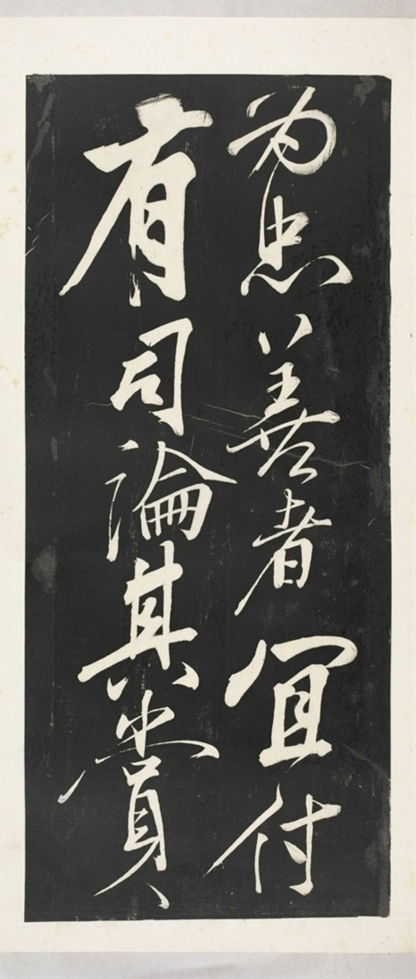 为忠善者宜付
有司論其賞